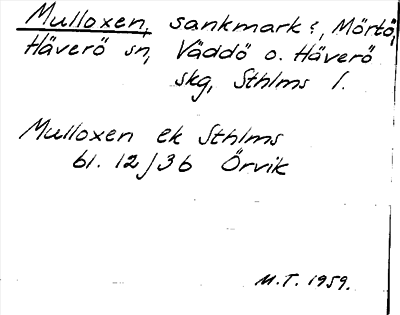 Mulloxen, sankmark?, Mörtö,
Häverö sn, Väddö o. Häverö
skg, Sthlms l.
Mulloxen ek Sthlms
bl. 12/36 Örvik
M.T. 1959.